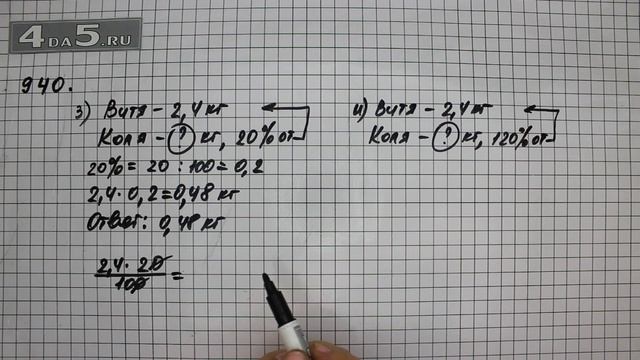 4DA5.RU
940.
з) Витя – 2,4 кг
Коля – ? кг, 20% от
20% = 20 : 100 = 0,2
2,4 · 0,2 = 0,48 кг
Ответ: 0,48 кг
2,4 · 20
100 =
и) Витя – 2,4 кг
Коля – ? кг, 120% от